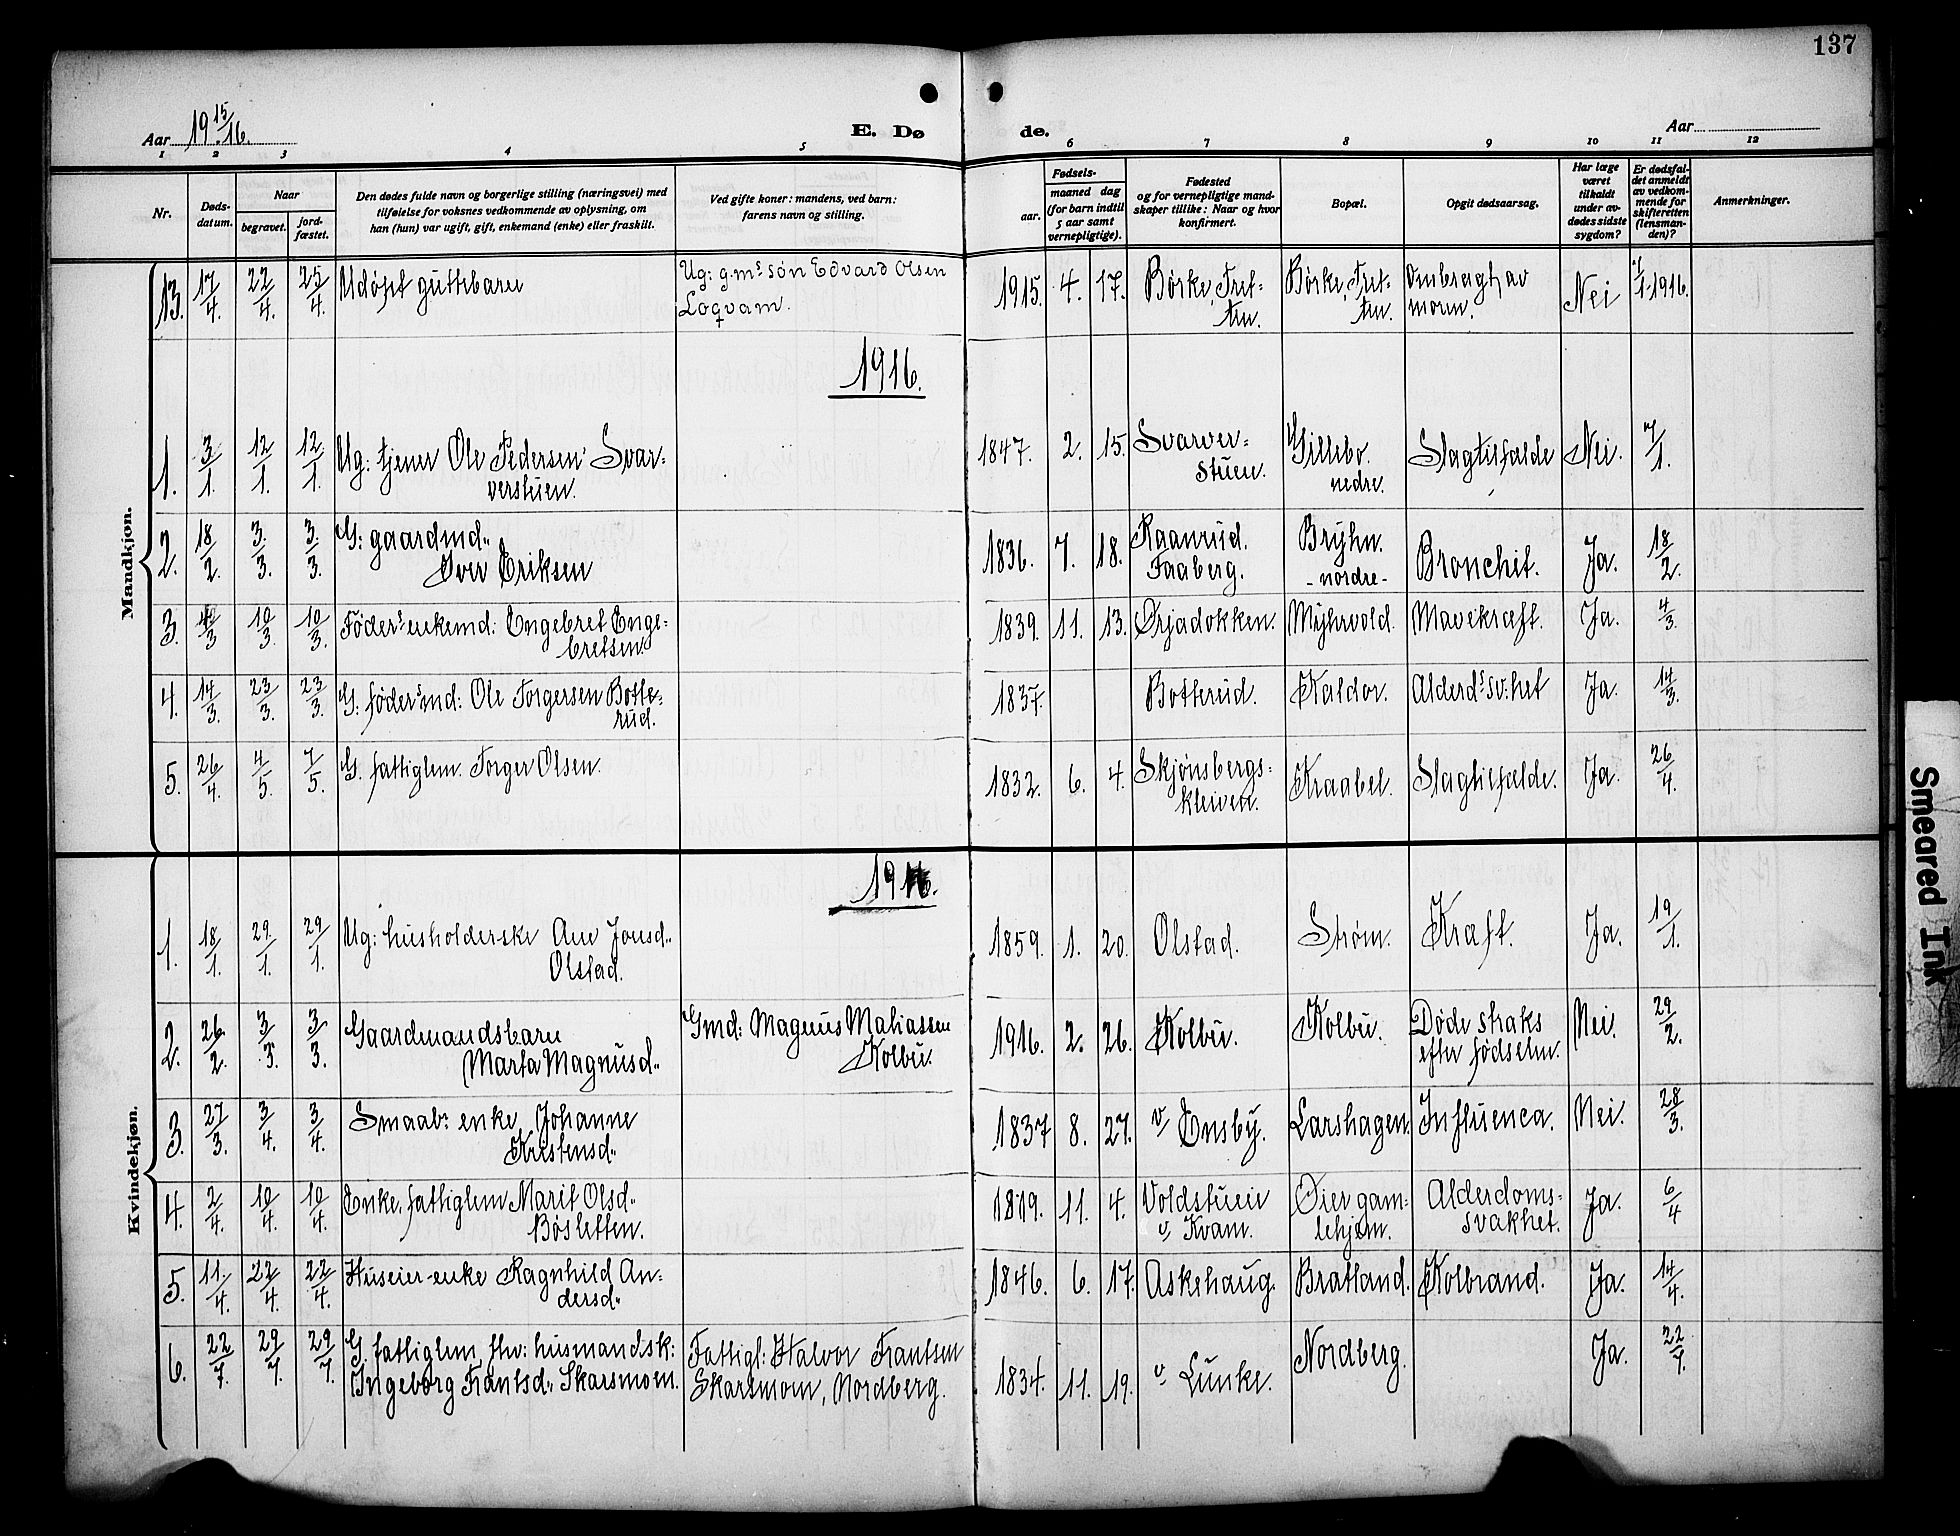 137
Aar 19 15/16.
E. Dø
de.
Aar
1 2 3 4 5 6 7 8 9 10 11 12
Nr.
Døds-
datum.
Naar
begravet.
jord-
fæstet.
Den dødes fulde navn og borgerlige stilling (næringsvei) med
tilføielse for voksnes vedkommende av oplysning, om
han (hun) var ugift, gift, enkemand (enke) eller fraskilt.
Ved gifte koner: mandens, ved barn:
farens navn og stilling.
Fødsels-
aar.
maaned dag
(for barn indtil
5 aar samt
vernepligtige).
Fødested
og for vernepligtige mand-
skaper tillike: Naar og hvor
konfirmert.
Bopæl.
Opgit dødsaarsag.
Har læge
været
tilkaldt
under av-
dødes sidste
sygdom?
Er dødsfal-
det anmeldt
av vedkom-
mende for
skifteretten
(lensman-
den)?
Anmerkninger.
Mandkjøn.
13. 17/4. 22/4. 25/4. Udöpt guttebarn Ug: g.m.s sön Edvard Olsen 1915. 4. 17. Børke, Tret- Børke, Tret- Ombragt av Nei 7/1.1916.
Loqvam. ten. ten. moren.
1916.
1. 3/1. 12/1. 12/1. Ug: tjener Ole Pedersen Svar- 1847. 2. 15. Svarver- Gillebo. Slagtilfælde Nei. 7/1.
verstuen. stuen. nedre.
2. 18/2. 3/3. 3/3. G: gaardmd„ 1836. 7. 18. Raanrud. Bryhn. Bronchit. Ja. 18/2.
Iver Eriksen Faaberg. -nordre-
3. 4/3 10/3. 10/3. Föder.s enkemd: Engebret Enge- 1839. 11. 13. Ørjadokken. Myhrvold. Mavekræft. Ja. 4/3.
bretsen.
4. 14/3. 23/3. 23/3. G: föder.s md: Ole Torgersen Botte- 1837. Botterud. Kaldor. Alderd.s sv:het Ja. 14/3.
rud.
5. 26/4. 4/5. 7/5. G. fattiglem. Torger Olsen. 1832. 6. 4. Skjønsbergs- Kraabel. Slagtilfælde. Ja. 26/4.
kleiven.
Kvindekjøn.
1916.
1. 18/1. 29/1. 29/1. Ug: husholderske Ane Jonsd„ 1859. 1. 20. Olstad. Strøm. Kræft. Ja. 19/1.
Olstad.
2. 26/2. 3/3. 3/3. Gaardmandsbarn Gmd: Magnus Maliassen 1916. 2. 26. Kolbu. Kolbu. Døde straks Nei. 29/2.
Marta Magnusd„ Kolbu. efter fødselen.
3. 27/3. 3/4. 3/4. Smaab: enke Johanne 1837 8. 27. v/ Ensby. Larshagen. Influenca. Nei. 28/3.
Kristensd„
4. 2/4. 10/4. 10/4. Enke, fattiglem Marit Olsd„ 1819. 11. 4. Voldstuen Øier gam- Alderdoms- Ja. 6/4
Bösletten. v/ Kvam. lehjem. svakhet.
5. 11/4. 22/4. 22/4. Huseier-enke Ragnhild An- 1846. 6. 17. Askehaug. Bratland. Kolbrand. Ja. 14/4.
dersd„
6. 22/7. 29/7. 29/7. G. fattiglem, fhv: husmandsk: Fattigl: Halvor Frantsen 1834. 11. 19. v/ Lunke. Nordberg. Ja. 22/7.
Ingeborg Frantsd„ Skarsmoen. Skarsmoen, Nordberg.
Smeared Ink